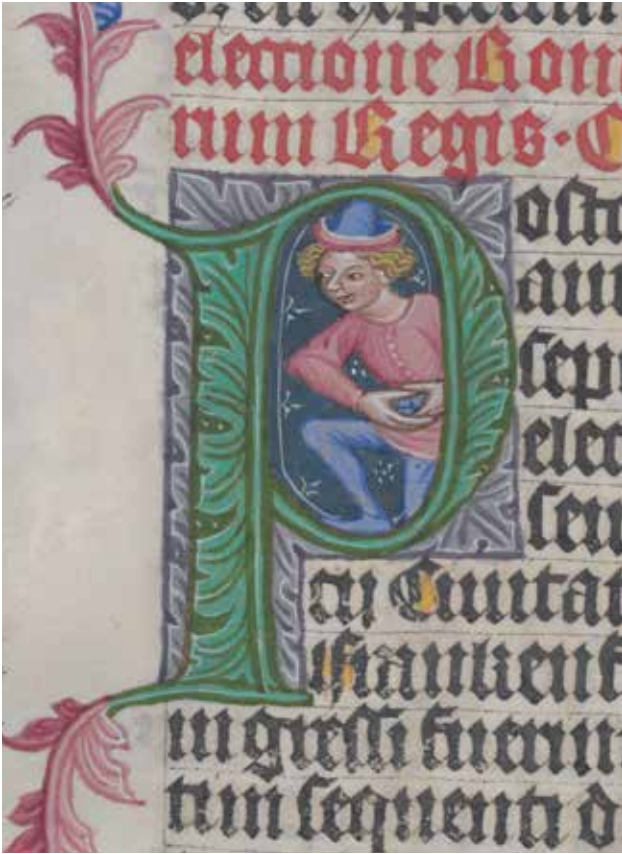 eleccione Rom
rum Regis. C
Postq
aut
sepe
elec
seu
cij Ciuitat
ffrankenf
ingressi fuerin
tim sequenti d